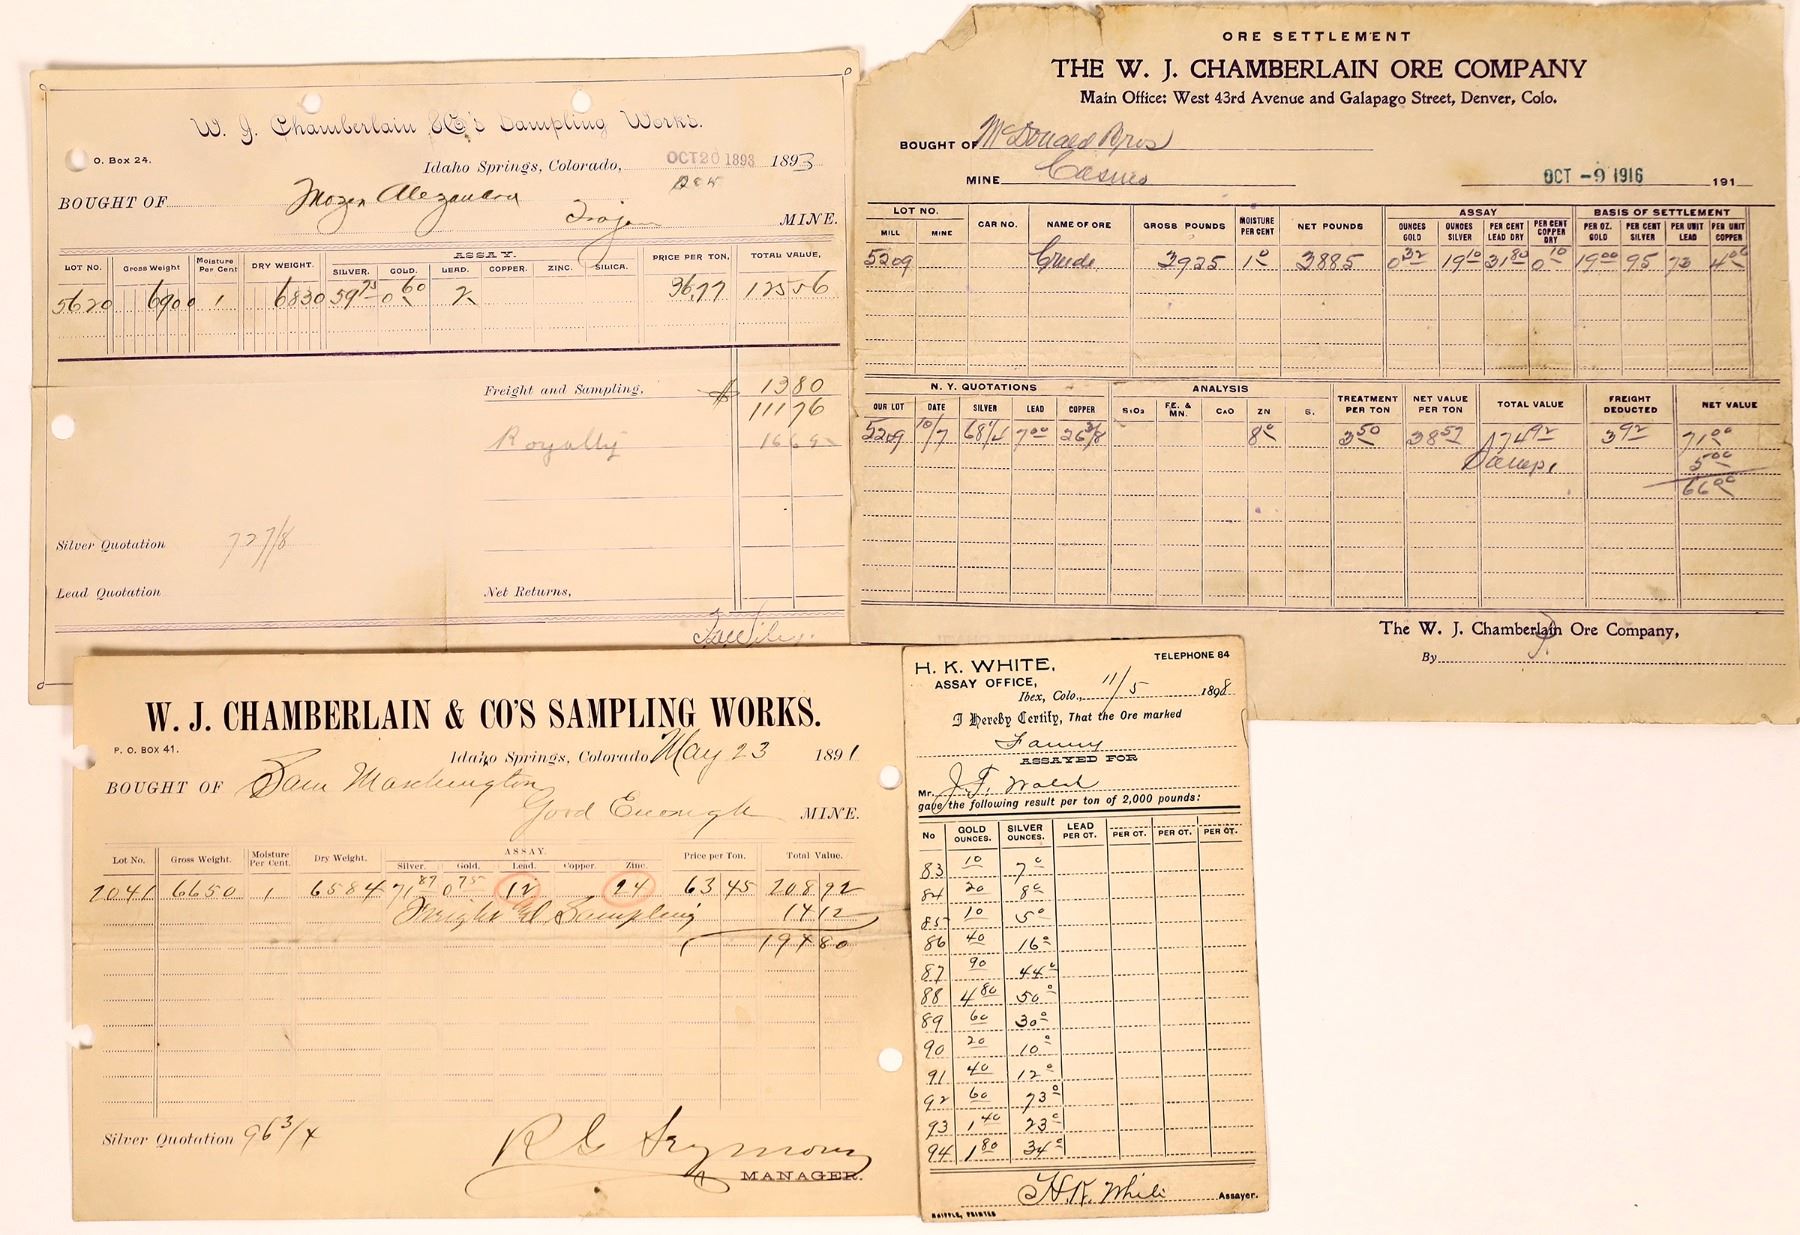 W. J. Chamberlain & Co's Sampling Works.
O. Box 24.
Idaho Springs, Colorado, OCT 20 1893 1893
BOUGHT OF Alexander
Trojan MINE.
LOT NO. Gross Weight Moisture Per Cent DRY WEIGHT. ASSAY. PRICE PER TON, TOTAL VALUE,
SILVER. GOLD. LEAD. COPPER. ZINC. SILICA.
5620 6900 1 6830 59 75 0 60 2 36.77 125 56
Freight and Sampling, 13 80
111 76
Royalty 16 69
Silver Quotation 72 7/8
Lead Quotation
Net Returns,
ORE SETTLEMENT
THE W. J. CHAMBERLAIN ORE COMPANY
Main Office: West 43rd Avenue and Galapago Street, Denver, Colo.
BOUGHT OF McDonald Bros
MINE
OCT -9 1916 191
LOT NO. CAR NO. NAME OF ORE GROSS POUNDS MOISTURE PER CENT NET POUNDS ASSAY BASIS OF SETTLEMENT
MILL MINE OUNCES GOLD OUNCES SILVER PER CENT LEAD DRY PER CENT COPPER DRY PER OZ. GOLD PER CENT SILVER PER UNIT LEAD PER UNIT COPPER
5209 Crude 3925 1 0 3885 0 32 19 10 31 80 0 10 19 00 95 73 4 06
N. Y. QUOTATIONS ANALYSIS TREATMENT PER TON NET VALUE PER TON TOTAL VALUE FREIGHT DEDUCTED NET VALUE
OUR LOT DATE SILVER LEAD COPPER SiO2 F.E. & MN. CaO ZN S.
5209 10/7 68 1/4 7 00 26 3/8 8 0 3 50 38 57 74 92 3 92 71 00
Samp. 5 00
66 00
The W. J. Chamberlain Ore Company,
By
W. J. CHAMBERLAIN & CO'S SAMPLING WORKS.
P. O. BOX 41.
Idaho Springs, Colorado May 23 1891
BOUGHT OF Sam
Good Enough MINE.
Lot No. Gross Weight. Moisture Per Cent. Dry Weight. ASSAY. Price per Ton. Total Value.
Silver. Gold. Lead. Copper. Zinc.
2041 6650 1 6584 71 87 0 75 12 24 63 45 208 92
Freight and Sampling 14 12
194 80
Silver Quotation 96 3/4
R G Seymour
MANAGER.
H. K. WHITE, TELEPHONE 84
ASSAY OFFICE,
Ibex, Colo., 11/5 1898
I Hereby Certify, That the Ore marked
Fanny
ASSAYED FOR
Mr. J. F. Walsh
gave the following result per ton of 2,000 pounds:
No GOLD OUNCES. SILVER OUNCES. LEAD PER CT. PER CT. PER CT. PER CT.
83 10 7 0
84 20 8 0
85 10 5 0
86 40 16 0
87 90 44 0
88 4 80 50 0
89 60 30 0
90 20 10 0
91 40 12 0
92 60 73 0
93 1 40 23 0
94 1 80 34 0
H. K. White Assayer.
PRINTER